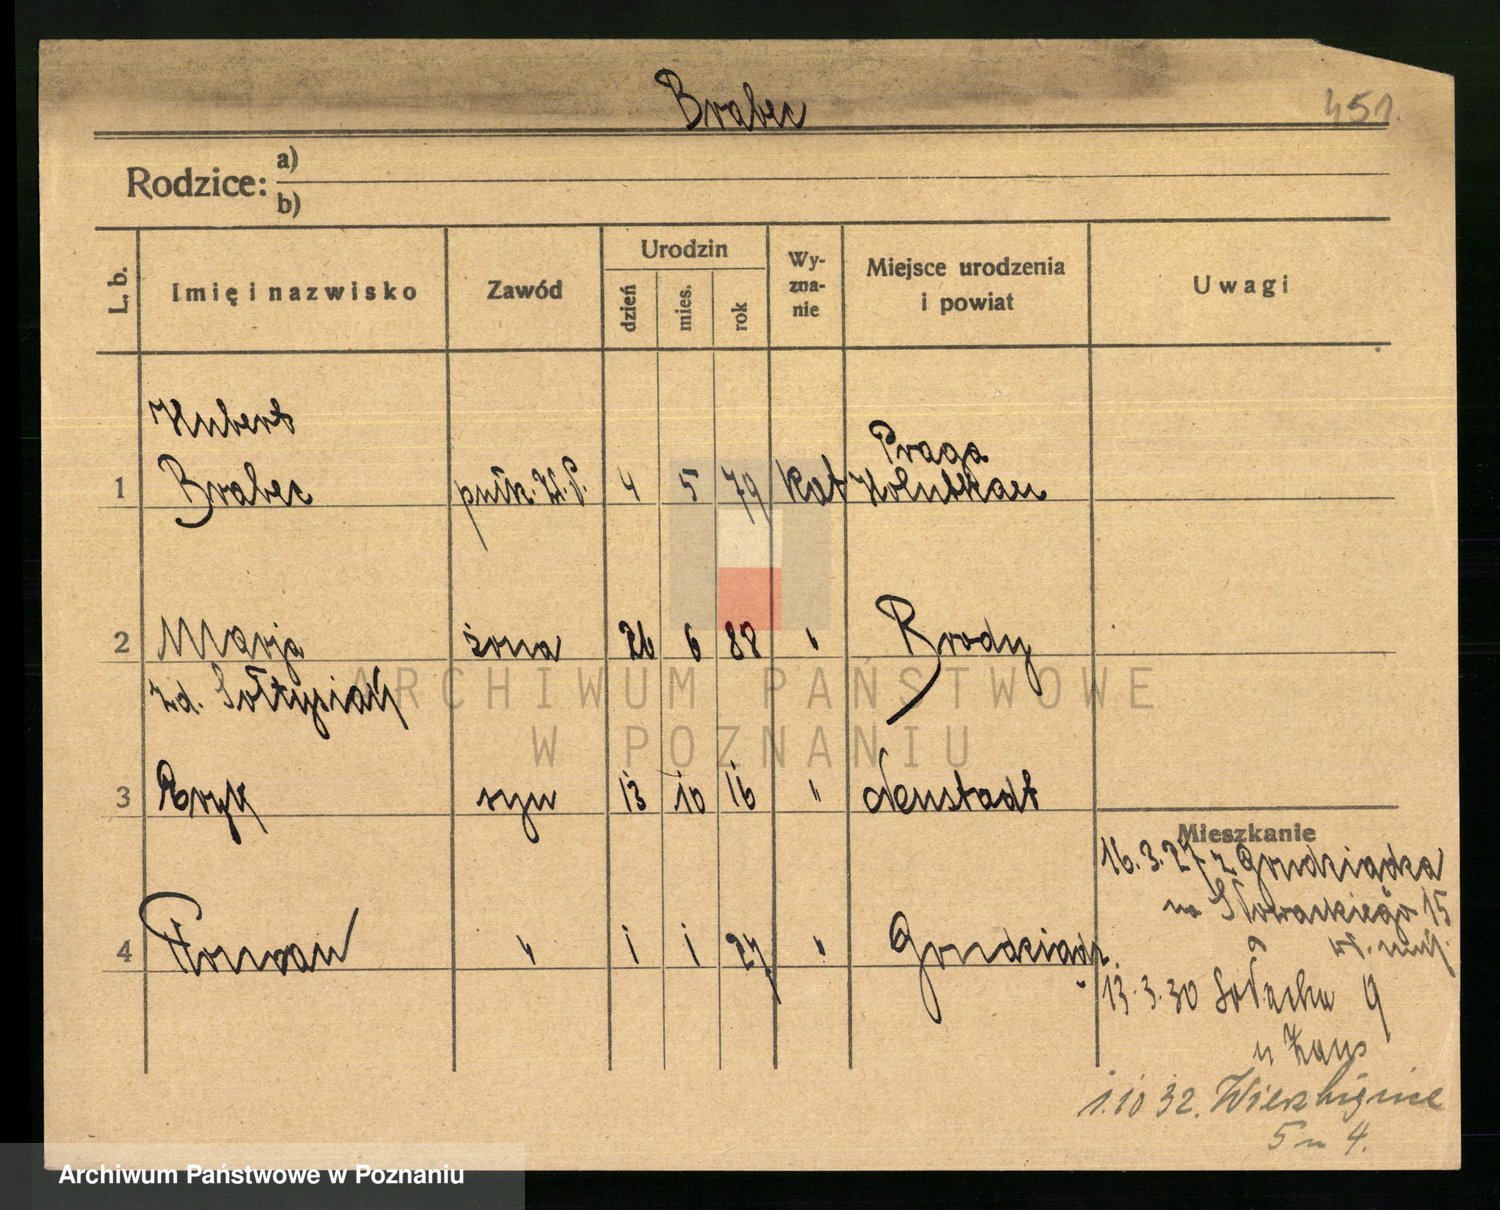 Brabec
451.
Rodzice: a)
b)
L. b. Imię i nazwisko Zawód Urodzin dzień mies. rok Wyznanie Miejsce urodzenia i powiat Uwagi
Hubert
Praga
1 Brabec 4 5 79 Kat Holubkau
2 Marja żona 26 6 88 " Brody
zd. Sołtysiak
3 Eryk syn 13 10 16 " Neustadt
Mieszkanie
16.3.27 z Grudziądza
na Słowackiego 15
4 Roman " 1 1 27 " Grudziądz
13.3.30 Sołacka 9
1.10 32. Wierzbięcice
5 m 4.
ARCHIWUM PAŃSTWOWE
W POZNANIU
Archiwum Państwowe w Poznaniu